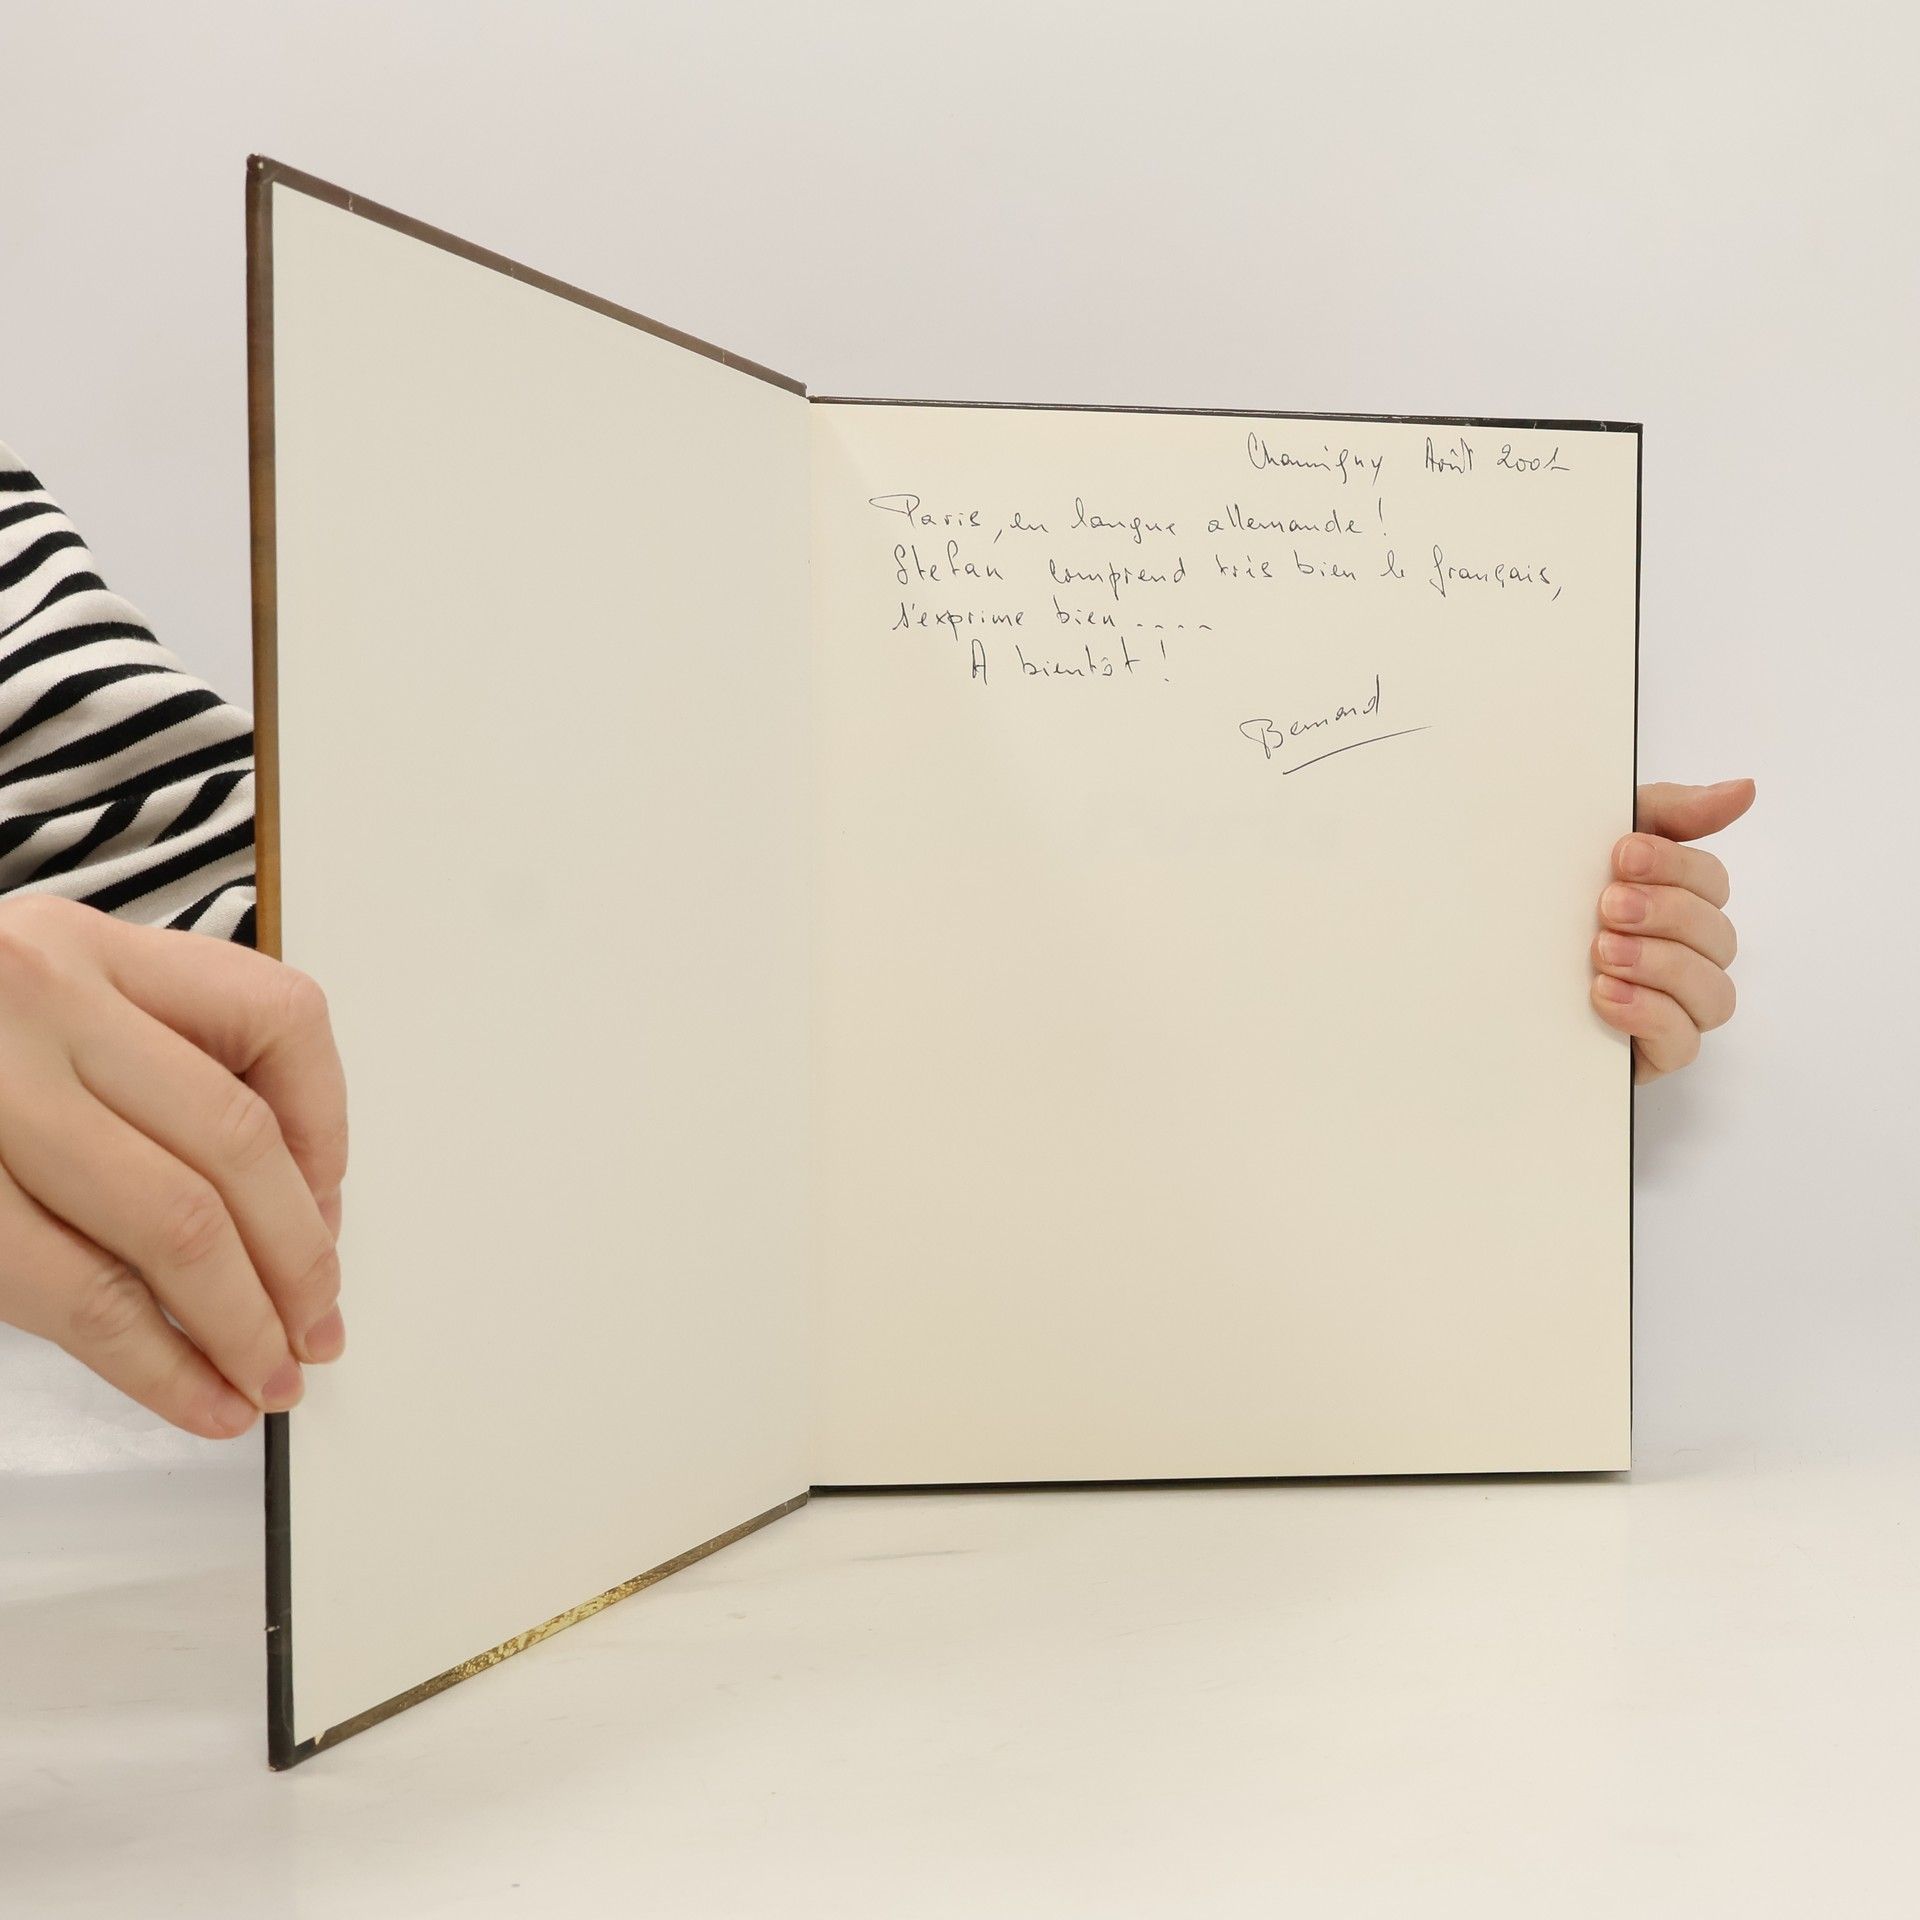 Chamigny Août 2001
Paris, en langue allemande !
Stefan comprend très bien le français,
s'exprime bien ....
A bientôt !
Bernard